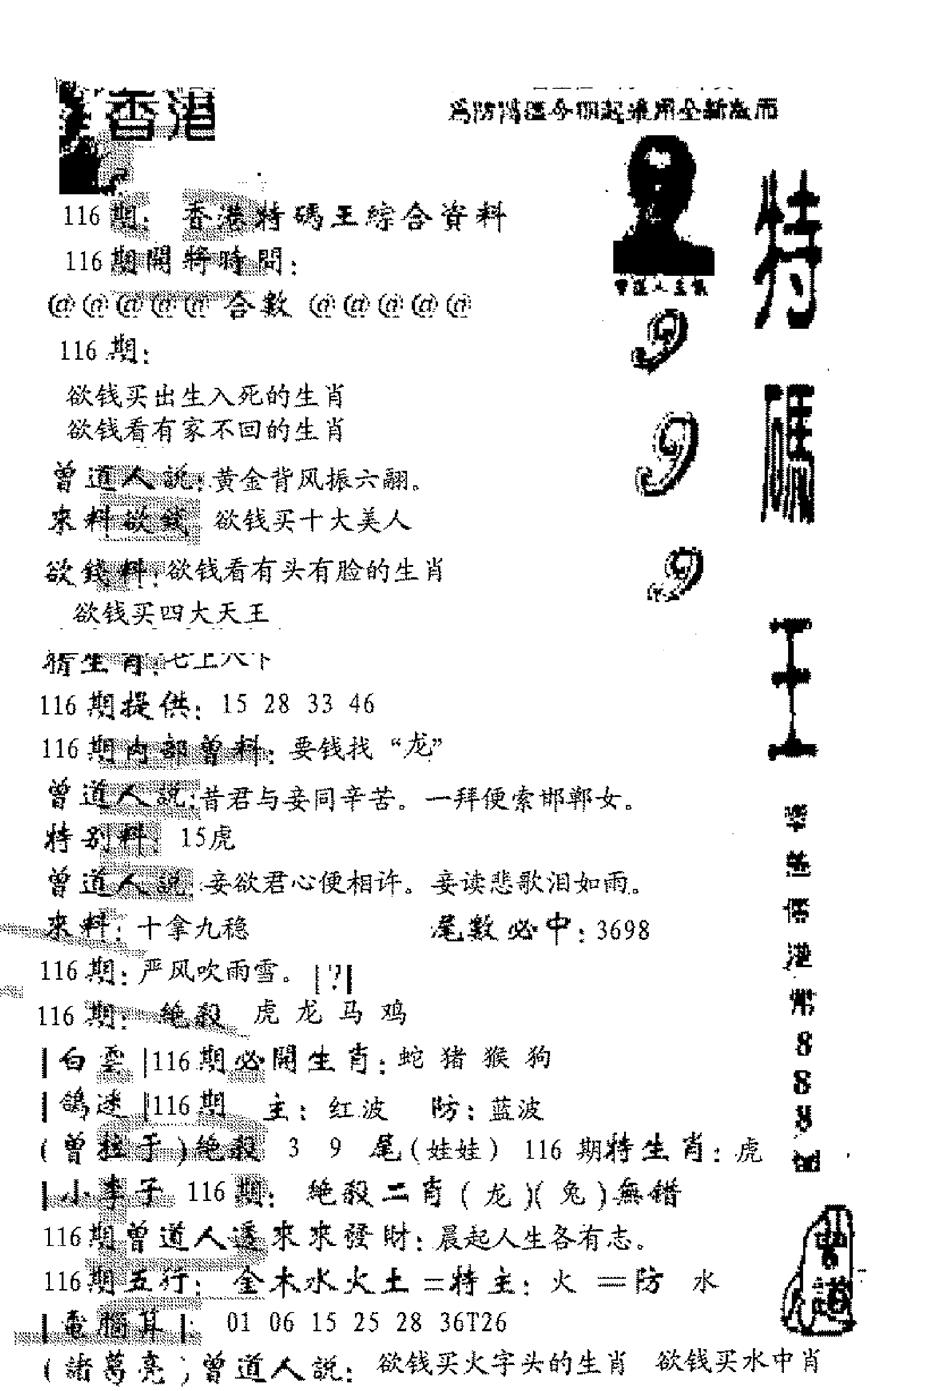 香港
為防濁區今期起采用全新版面
116期: 香港特碼王綜合資料
曾道人主機
116期開將時間:
@@@@@合數@@@@@
116期:
欲钱买出生入死的生肖
欲钱看有家不回的生肖
曾道人說:黄金背风振六翮。
來料欲錢 欲钱买十大美人
欲錢料:欲钱看有头有脸的生肖
欲钱买四大天王
猜生肖:七上八下
116期提供: 15 28 33 46
116期内部曾料: 要钱找“龙”
曾道人說:昔君与妾同辛苦。一拜便索邯郸女。
特别料: 15虎
曾道人說:妾欲君心便相许。妾读悲歌泪如雨。
來料: 十拿九稳 尾數必中: 3698
116期: 严风吹雨雪。|?|
116期: 絶殺 虎 龙 马 鸡
|白雲|116期必開生肖: 蛇 猪 猴 狗
|鴿迷|116期 主: 红波 防: 蓝波
(曾拉于)絶殺 3 9 尾(娃娃) 116期特生肖: 虎
|小李子 116期: 絶殺二肖(龙)(兔)無錯
116期曾道人透來來發財: 晨起人生各有志。
116期五行: 金木水火土二特主: 火 二防 水
|電腦算|: 01 06 15 25 28 36T26
(諸葛亮)曾道人説: 欲钱买火字头的生肖 欲钱买水中肖
特
碼
王
9
9
9
港
888
曾道